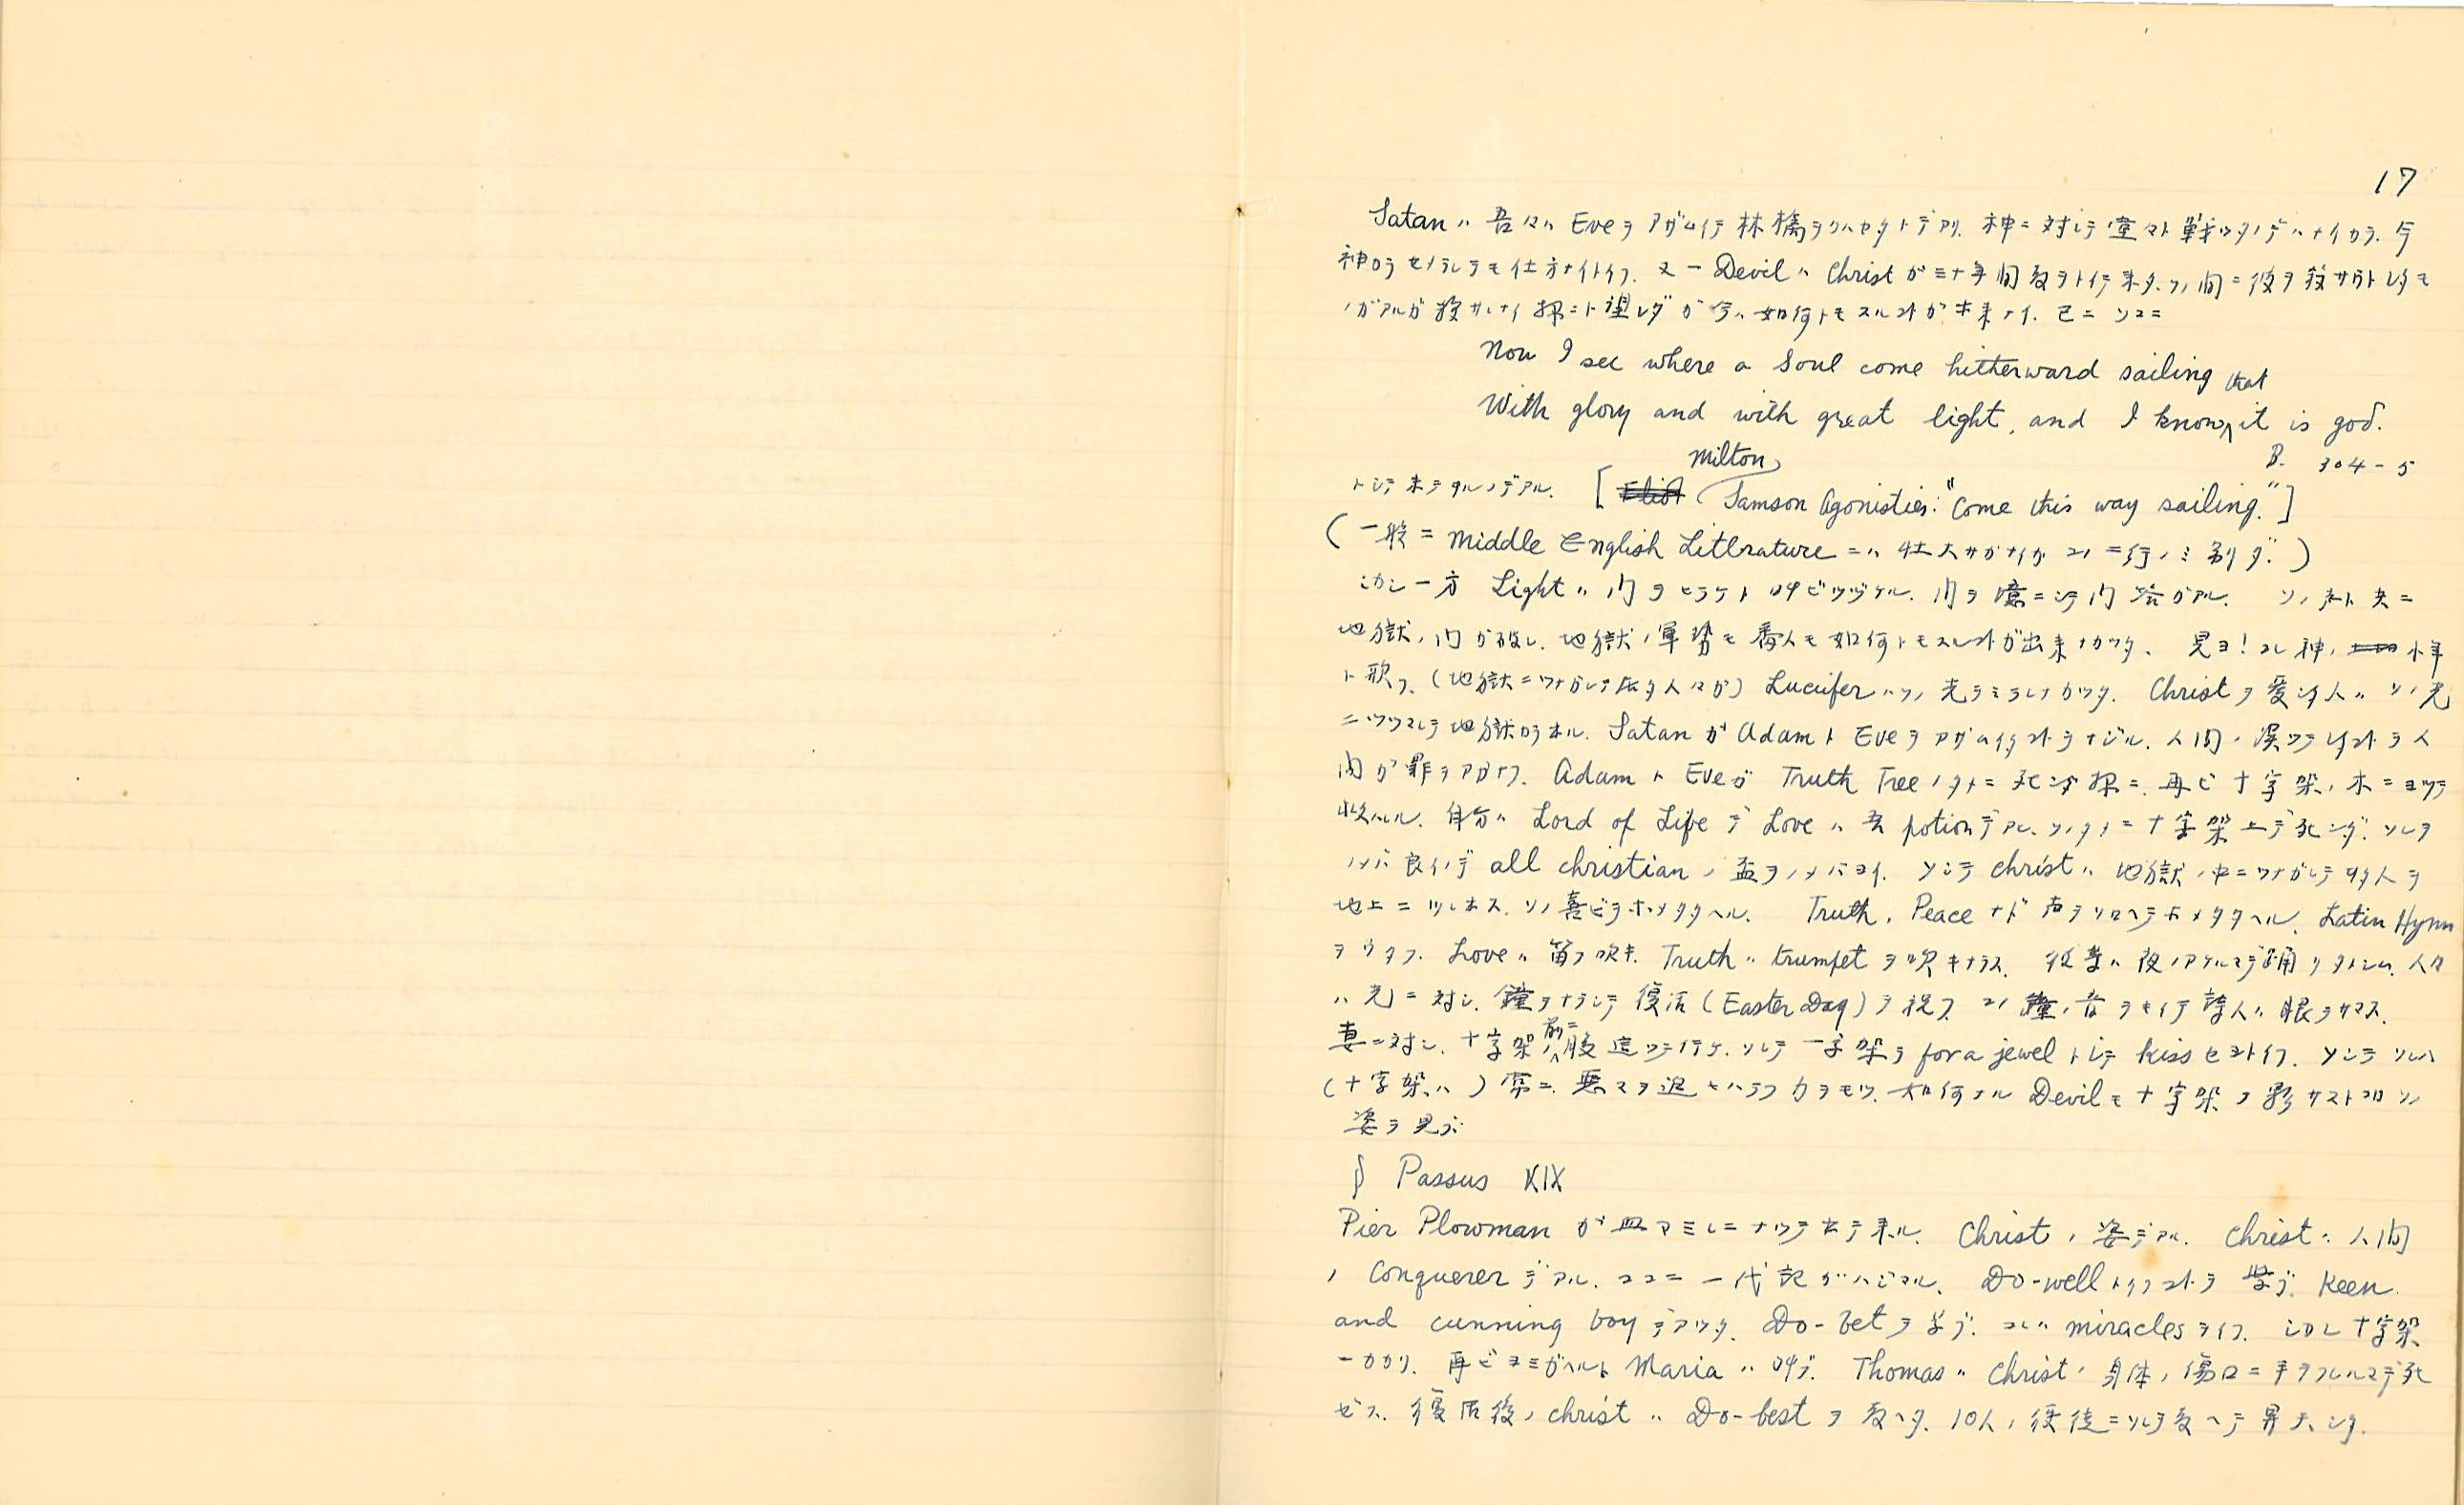 17
Satanハ吾々ハEveヲアザムイテ林檎ヲクハセタトデアリ. 神ニ対シテ堂々ト戦ツタノデハナイカラ. 今
神カラセメラレテモ仕方ナイトイフ. 又一Devilハ Christガ三十年間教ヲトイテ来タ. ソノ間ニ彼ヲ殺サウトシタモ
ノガアルガ殺サレナイ様ニト望ンダガ今ハ如何トモスルコトガ出来ナイ. 已ニソコニ
Now I see where a Soul come hitherward sailing
With glory and with great light, and I know that it is god.
B. 304-5
トシテ来テヰルノデアル. [Milton Samson Agonisties: "Come this way sailing."]
(一般ニ Middle English Litlrature ニハ壮大サガナイガコノ二行ノミ別ダ.)
シカシ一方 Lightハ門ヲヒラケト叫ビツヅケル. 門ヲ境ニシテ問答ガアル. ソノ 共ニ
地獄ノ門ガ破レ. 地獄ノ軍勢モ番人モ如何トモスルコトガ出来ナカツタ. 見ヨ! コレ神ノ小羊
ト歌フ. (地獄ニツナガレテ居タ人々ガ) Luciferハソノ光ヲミラレナカツタ. Christヲ愛シタ人ハソノ光
ニツツマレテ地獄カラ出ル. SatanガAdamトEveヲアザムイタコトヲナジル. 人間ノ誤ツテシタコトヲ人
間ガ罪ヲアガナフ. AdamトEveガ Truth Treeノタメニ死ンダ様ニ. 再ビ十字架ノ木ニヨツテ
救ハレル. 自分ハ Lord of LifeデLoveハ吾potionデアル. ソノタメニ十字架上デ死ンダ. ソレヲ
ノメバ良イノデ all christianノ盃ヲノメバヨイ. ソシテchristハ地獄ノ中ニツナガレテヰタ人ヲ
地上ニツレ出ス. ソノ喜ビヲホメタタヘル. Truth, Peaceナド声ヲソロヘテホメタタヘル. Latin Hymn
ヲウタフ. Loveハ笛ヲ吹キ. Truthハtrumpetヲ吹キナラス. 彼等ハ夜ノアケルマデ踊リタノシム. 人々
ハ光ニ対シ. 鐘ヲナラシテ復活(Easter Day)ヲ祝フ. コノ鐘ノ音ヲキイテ詩人ハ眼ヲサマス.
妻ニ対シ. 十字架ノ前ニ這ツテイテケ. ソシテ十字架ヲ for a jewel トシテ kissセヨトイフ. ソシテソレハ
(十字架ハ) 常ニ. 悪マヲ追ヒハラフ力ヲモツ. 如何ナルDevilモ十字架ノ影サストコロソノ
姿ヲ見ズ
§ Passus XIX
Pier Plowmanガ血マミレニナツテ出テ来ル. Christノ姿デアル. Christハ人間
ノ Conquererデアル. ココニ一代記ガハジマル. Do-wellトイフコトヲ学ブ. Keen
and cunning boyデアツタ. Do-betヲ学ブ. コレハmiraclesヲイフ. シカシ十字架
ニカカリ. 再ビヨミガヘルトMariaハ叫ブ. ThomasハChristノ身体ノ傷口ニ手ヲフレルマデ死
ゼズ. 復活後ノchristハ Do-bestヲ教ヘタ. 10人ノ使徒ニソレヲ教ヘテ昇天シタ.